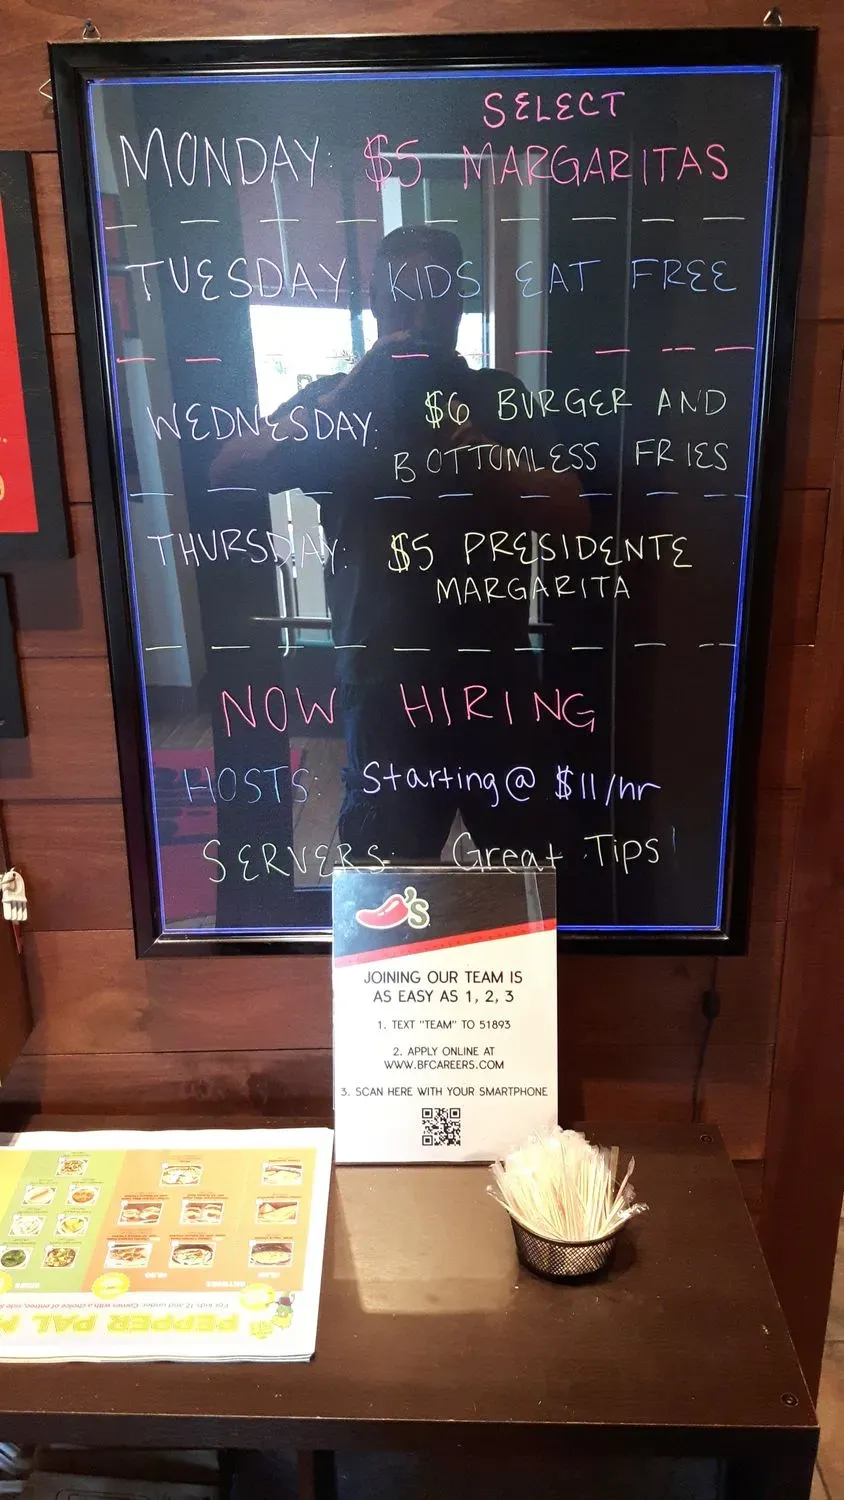 SELECT
MONDAY: $5 MARGARITAS
TUESDAY: KIDS EAT FREE
WEDNESDAY: $6 BURGER AND
BOTTOMLESS FRIES
THURSDAY: $5 PRESIDENTE
MARGARITA
NOW HIRING
HOSTS: Starting @ $11/hr
SERVERS: Great Tips!
'S
JOINING OUR TEAM IS
AS EASY AS 1, 2, 3
1. TEXT "TEAM" TO 51893
2. APPLY ONLINE AT
WWW.BFCAREERS.COM
3. SCAN HERE WITH YOUR SMARTPHONE
PEPPER PAL
For kids 12 and under. Comes with a choice of entree, side